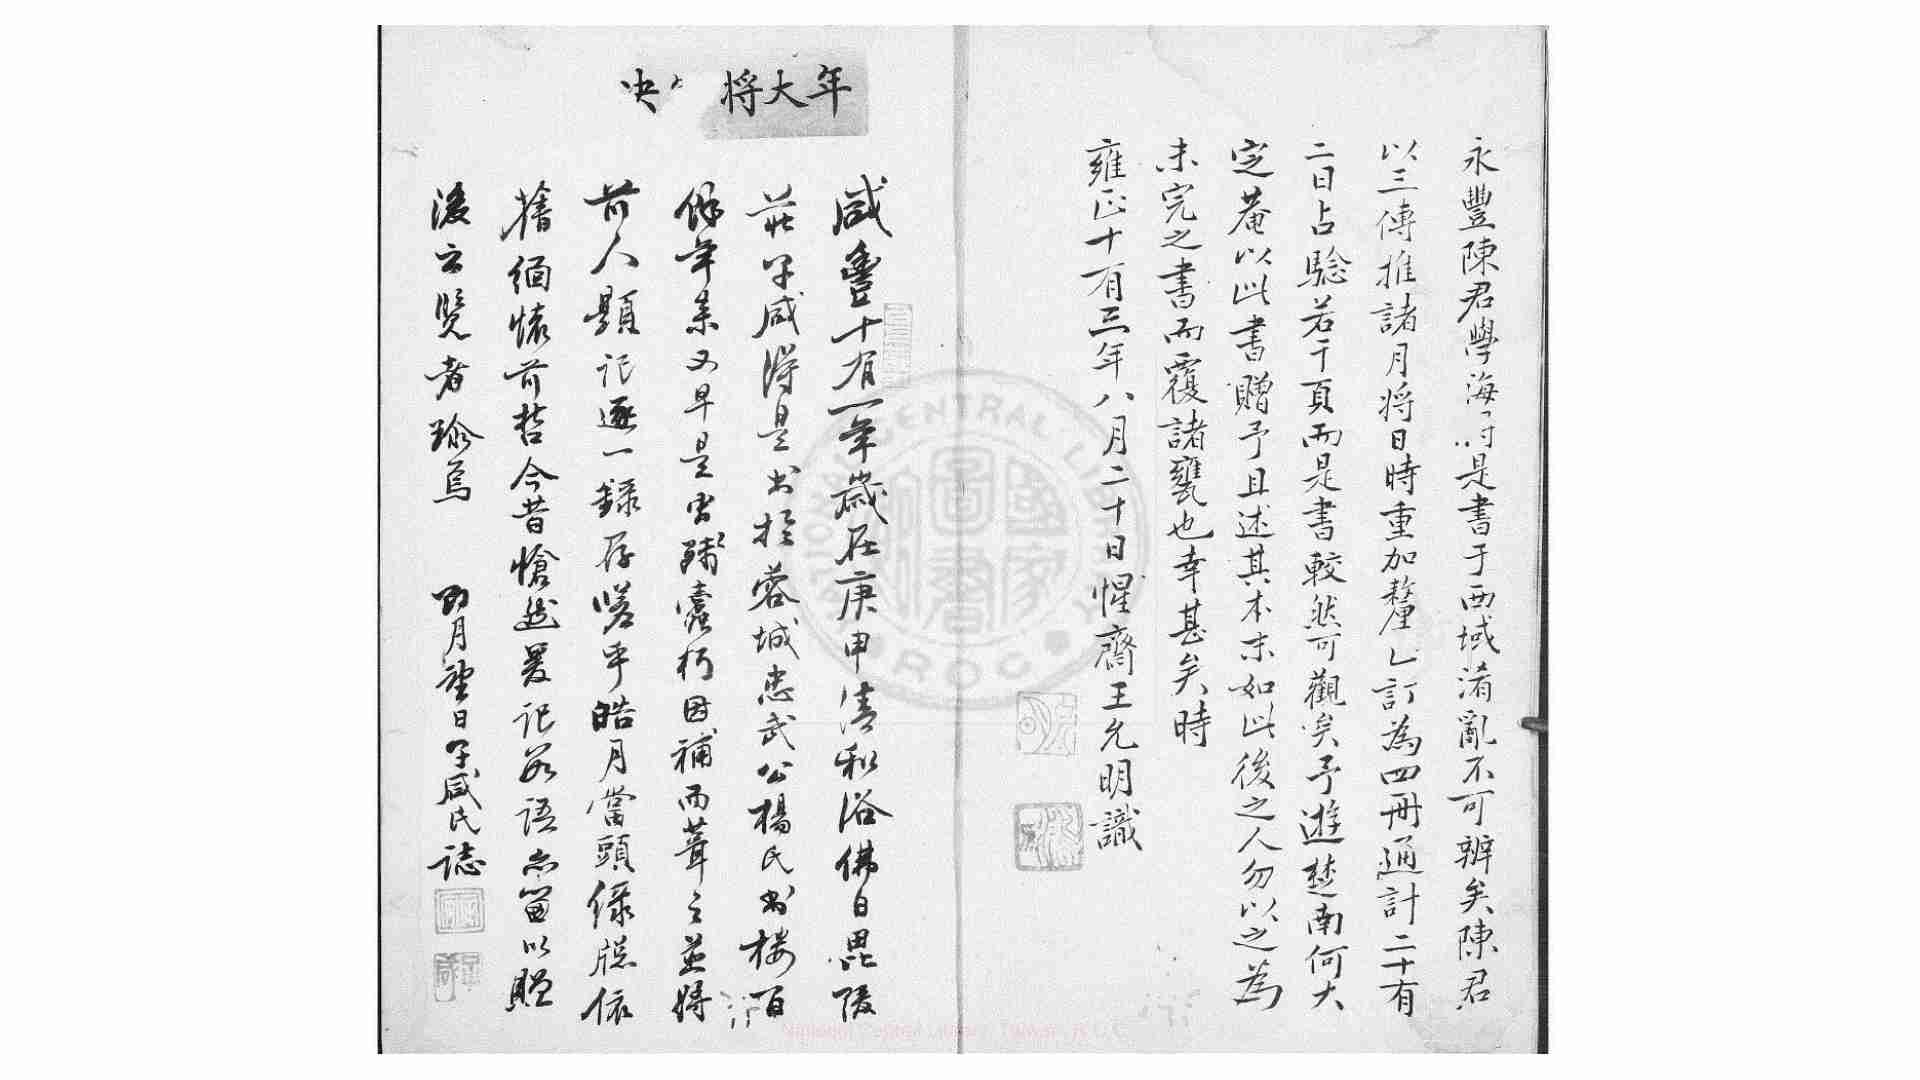 永豐陳君學海 是書于西域淆亂不可辨矣陳君
以三傳推諸月將日時重加釐乙訂為四冊通計二十有
二日占驗若干頁而是書較然可觀矣予遊楚南何大
定菴以此書贈予且述其本末如此後之人勿以之為
未完之書而覆諸甕也幸甚矣時
雍正十有三年八月二十日惺齋王允明識
年大將 央
咸豐十有一年歲在庚申清和浴佛日毘陵
莊子咸得是书於蓉城忠武公楊氏书樓百
餘年來又早是虫殘蠹朽因補而葺之並將
前人題記逐一錄存嗟乎皓月當頭綠 依
舊緬懷前哲今昔愴 爰記數語亦留以貽
後之覽者 焉 四月望日子咸氏誌
NATIONAL CENTRAL LIBRARY
國家圖書館
ROC
National Central Library, Taiwan, R.O.C